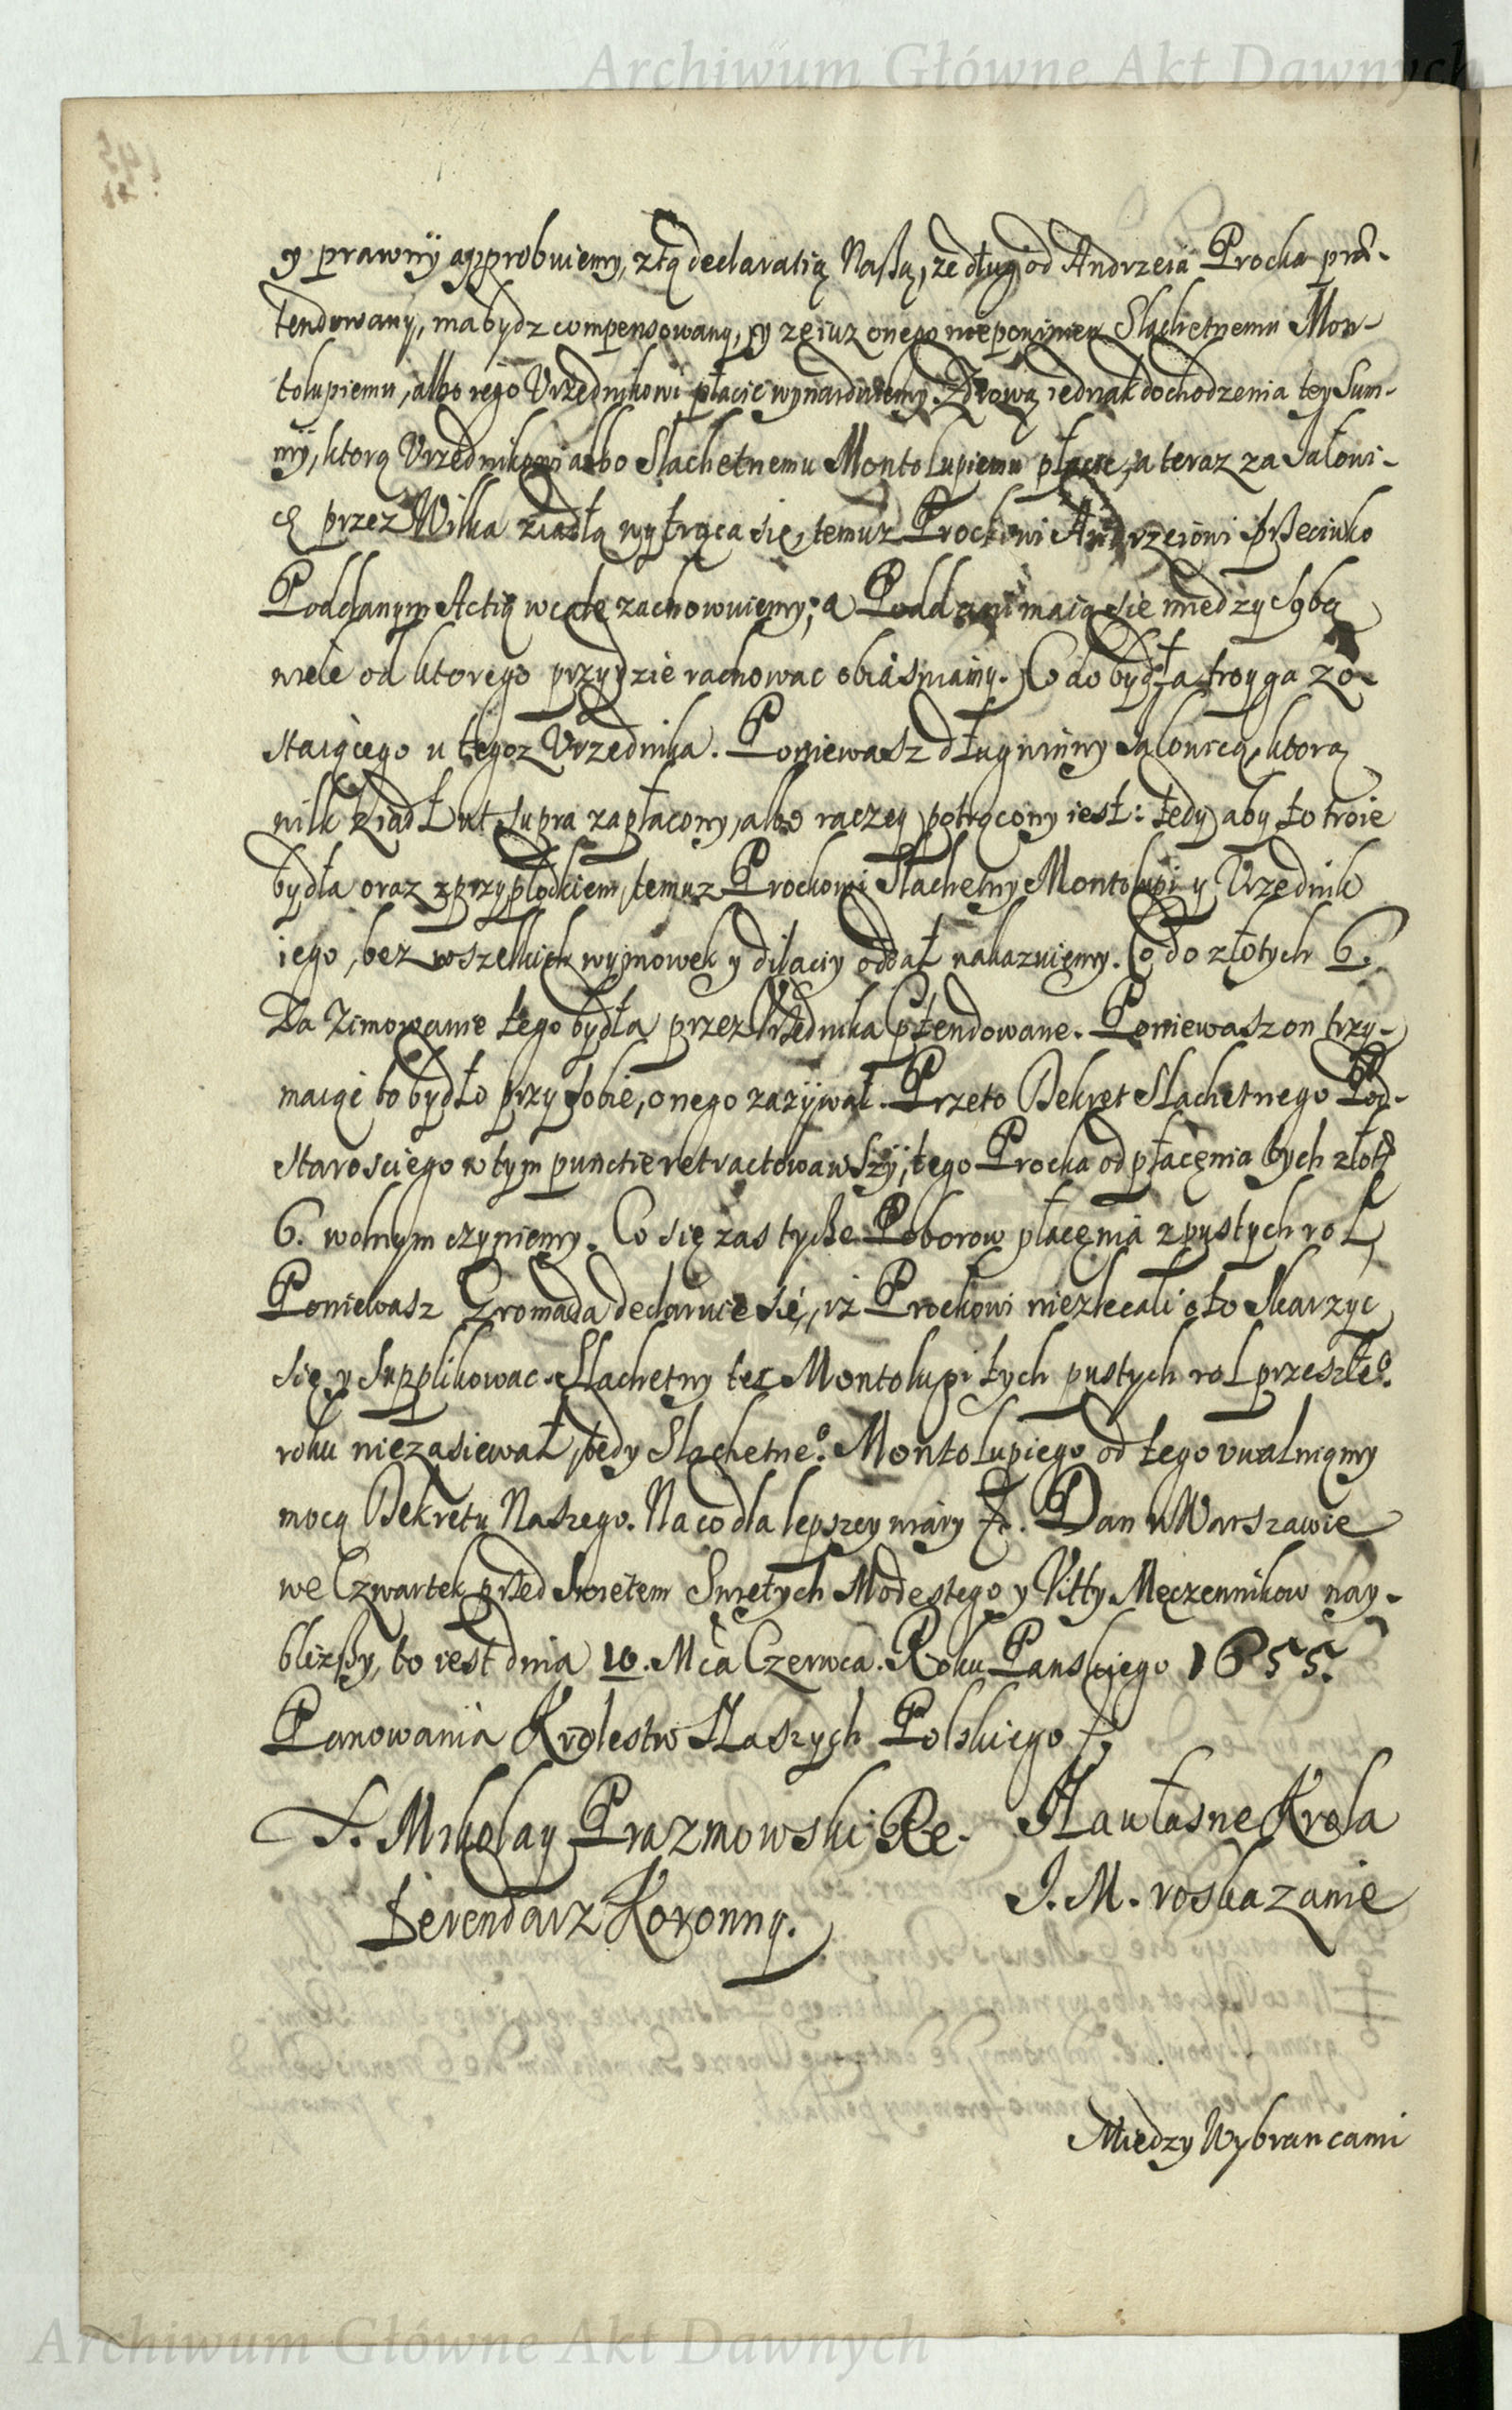 Archiwum Główne Akt Dawnych
y prawny approbuiemy, z tą declaratią Naszą, ze dług od Andrzeia Procka præ-
tendowany, ma bydz compensowany, y ze iuz onego niepowinien Slachetnemu Mon-
tolupiemu, albo iego Vrzędnikowi płacic wynaiduiemy. Zdrową iednak dochodzenia tey Sum-
my, ktorą Vrzędnikowi albo Slachetnemu Montolupiemu płacic, a teraz za Jałowi-
cę przez Wilka ziadłą wytrąca się, temuz Prockowi Andrzeiowi przeciwko
Poddanym Actią wcale zachowuiemy; a Poddani maią się między sobą
wiele od ktorego przydzie rachowac obiasniamy. Co do bydła troyga zo-
staiącego u tegoz Vrzędnika. Poniewasz dług winny Jałowicą, ktorą
wilk ziadł ut supra zapłacony, albo raczey potrącony iest: tedy aby to troie
bydła oraz z przypłodkiem, temuz Prockowi Slachetny Montolupi y Vrzędnik
iego, bez wszelkich wymowek y dilaciy oddał nakazuiemy. Co do złotych 6.
Za Zimowanie tego bydła przez Vrzędnika prtendowane. Poniewasz on trzy-
maiąc to bydło przy sobie, onego zazywał. Przeto Dekret Slachetnego Pod-
starosciego w tym punctie retractowawszy, tego Procka od płacenia tych złot
6. wolnym czyniemy. Co się zas tycze Poborow płacenia z pustych rol,
Poniewasz Gromada declaruie się, iz Prockowi niezlecali o to skarzyc
się y supplikowac. Slachetny tez Montolupi tych pustych rol przeszłeo.
roku niezasiewał, tedy Slachetneo. Montolupiego od tego uwalniamy
mocą Dekretu Naszego. Na co dla lepszey wiary &. Dan w Warszawie
we Czwartek przed Swiętem Swiętych Modestego y Vitty Męczennikow nay-
bliszy, to iest dnia 10. Mca Czerwca. Roku Panskiego 1655.
Panowania Krolestw Naszych Polskiego &.
X. Mikolay Prazmowski Re-
ferendarz Koronny.
Na własne Krola
J. M. roskazanie
Między Wybrancami
Archiwum Główne Akt Dawnych